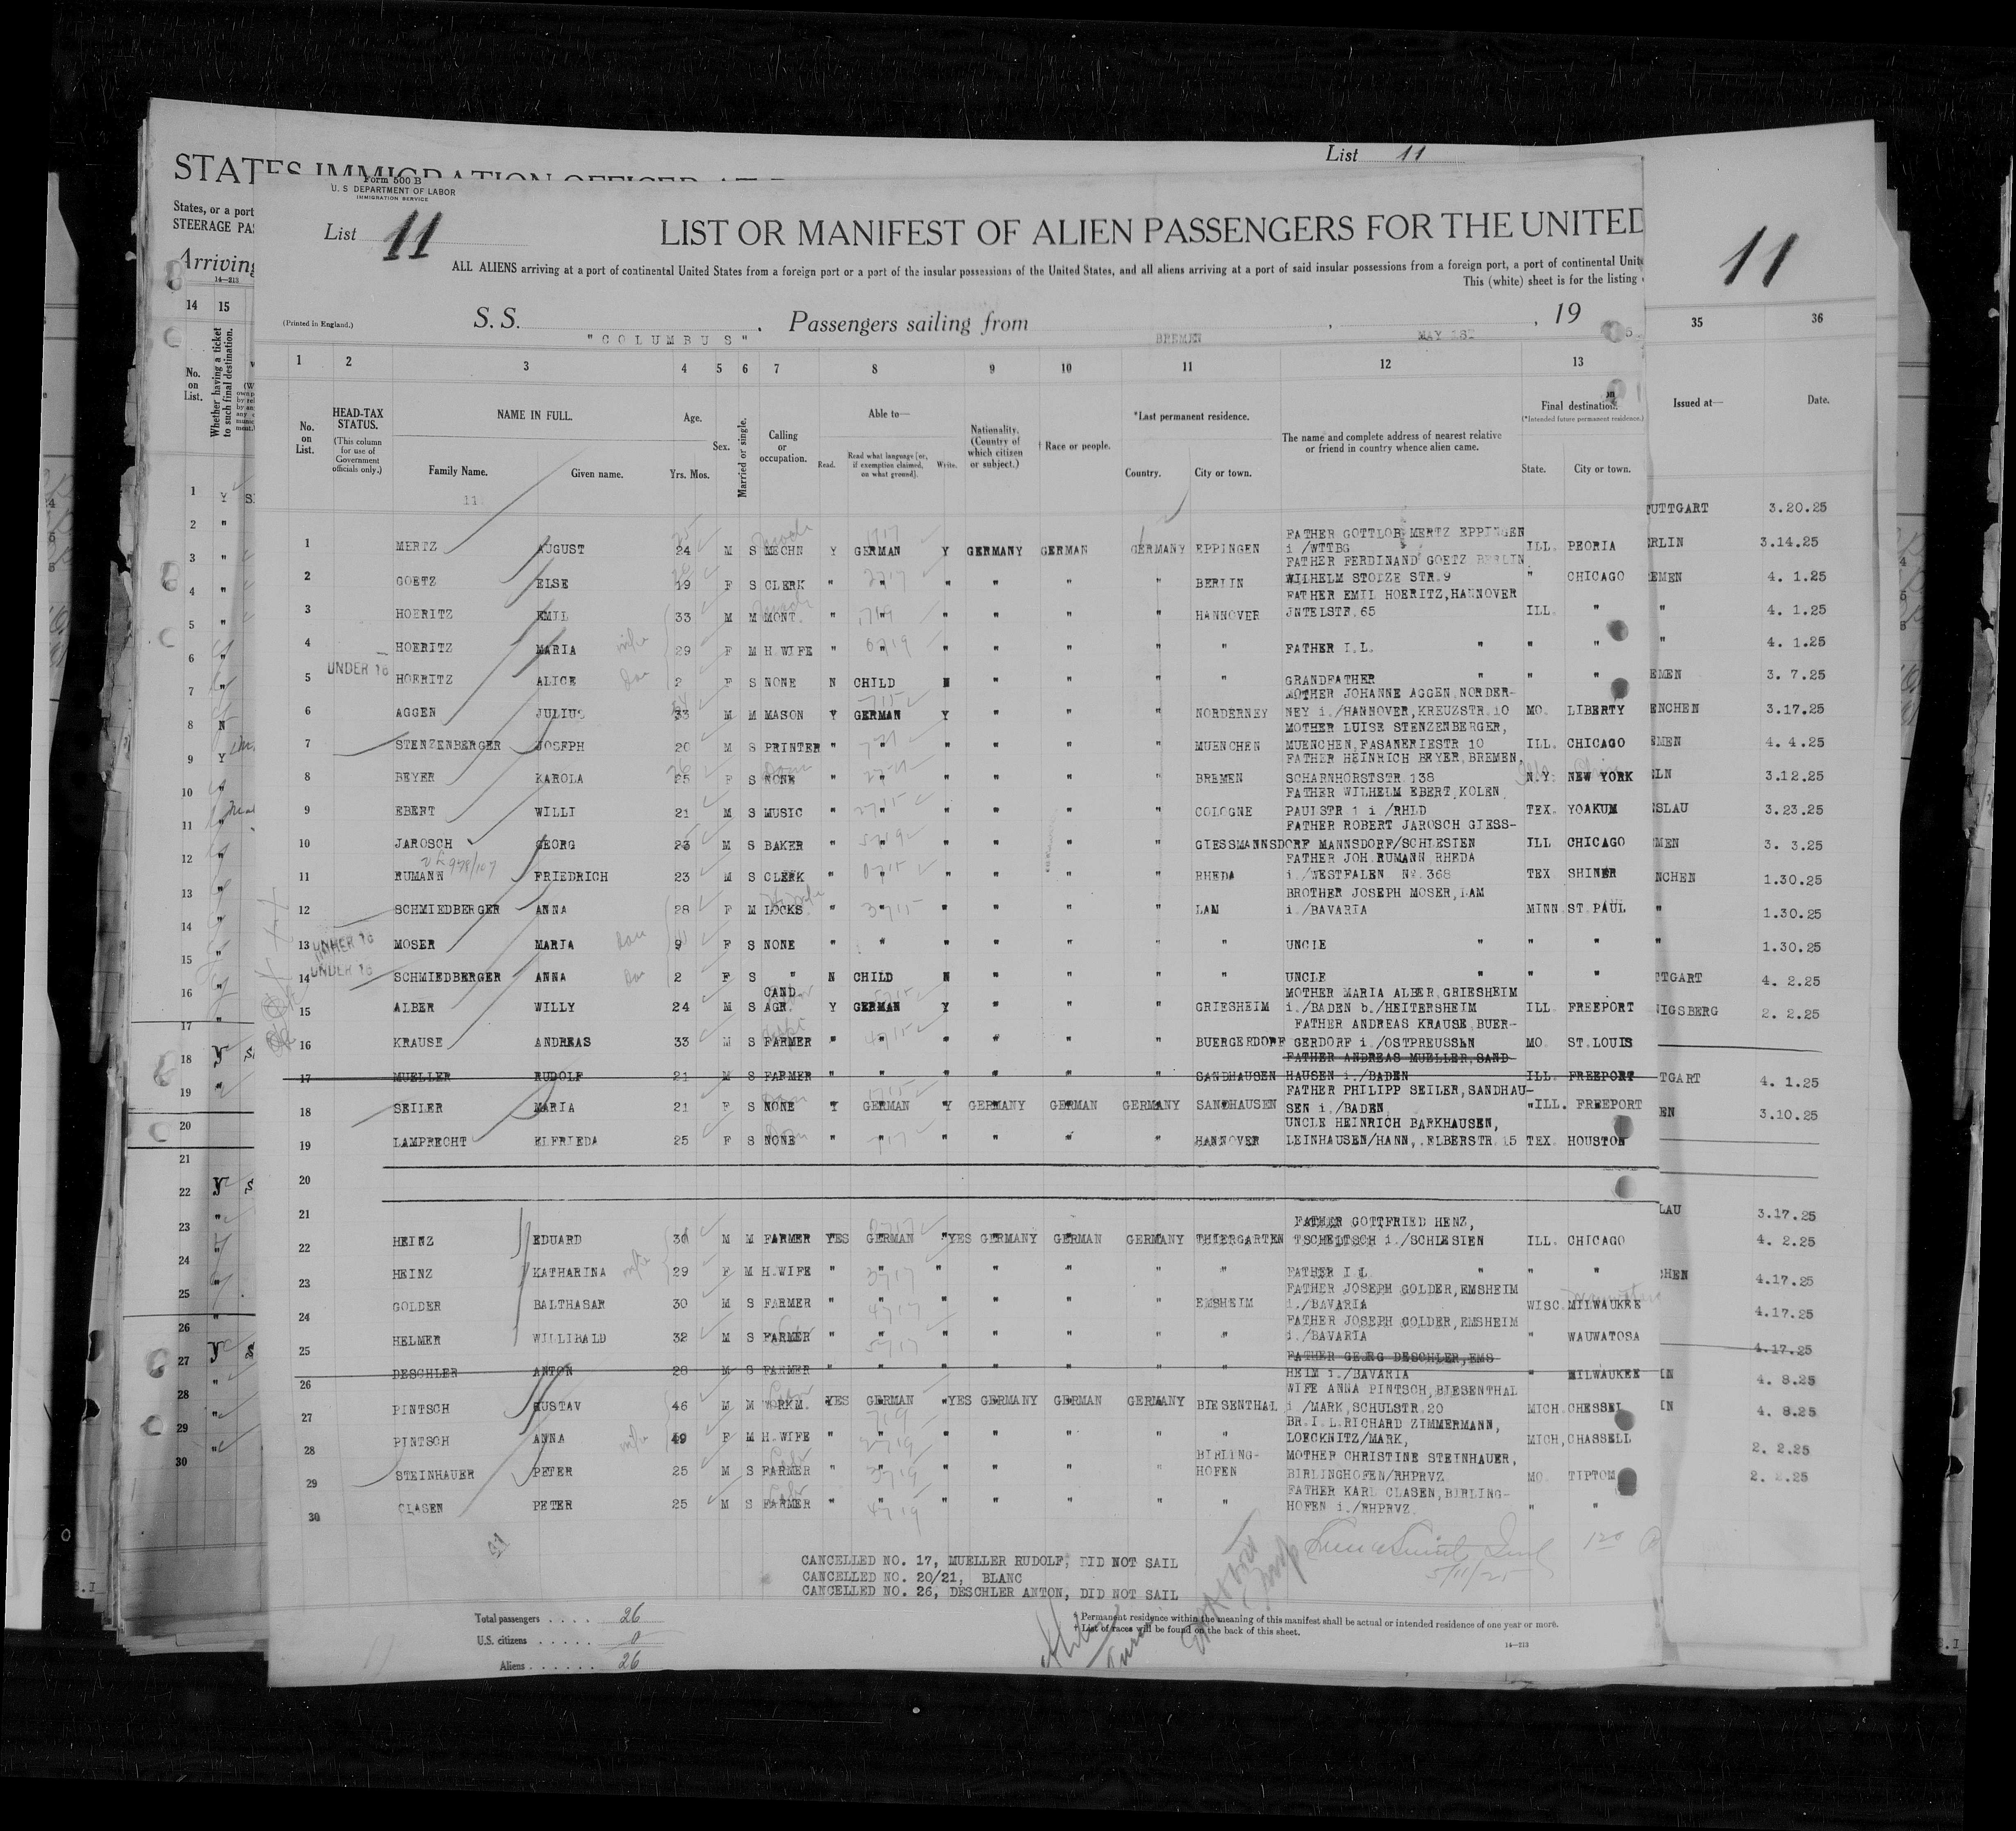 List 11
STATES IMMIGRATION OFFICER AT
Form 500 B
U. S DEPARTMENT OF LABOR
IMMIGRATION SERVICE
States, or a port
STEERAGE PA
List 11
LIST OR MANIFEST OF ALIEN PASSENGERS FOR THE UNITED
11
Arriving
14—213
ALL ALIENS arriving at a port of continental United States from a foreign port or a port of the insular possessions of the United States, and all aliens arriving at a port of said insular possessions from a foreign port, a port of continental Unit
This (white) sheet is for the listing
(Printed in England.)
S. S. "COLUMBUS" , Passengers sailing from BREMEN , MAY 1ST , 19 5.
14 15
1 2 3 4 5 6 7 8 9 10 11 12 13 35 36
No. on List.
Whether having a ticket to such final destination.
No. on List.
HEAD-TAX STATUS.
(This column for use of Government officials only.)
NAME IN FULL.
Family Name.
Given name.
Age.
Yrs. Mos.
Sex.
Married or single.
Calling or occupation.
Able to—
Read.
Read what language [or, if exemption claimed, on what ground].
Write.
Nationality. (Country of which citizen or subject.)
† Race or people.
*Last permanent residence.
Country.
City or town.
The name and complete address of nearest relative or friend in country whence alien came.
Final destination.
(*Intended future permanent residence.)
State.
City or town.
Issued at—
Date.
11
1 MERTZ AUGUST 24 M S MECHN Y GERMAN Y GERMANY GERMAN GERMANY EPPINGEN FATHER GOTTLOB MERTZ EPPINGEN i/WTTBG ILL. PEORIA
2 GOETZ ELSE 19 F S CLERK " " " " " " BERLIN FATHER FERDINAND GOETZ BERLIN WILHELM STOLZE STR.9 " CHICAGO
3 HOERITZ EMIL 33 M M MONT. " " " " " " HANNOVER FATHER EMIL HOERITZ,HANNOVER JNTELSTR.65 ILL. "
4 HOERITZ MARIA 29 F M H.WIFE " " " " " " " FATHER I.L. " " "
UNDER 16
5 HOERITZ ALICE 2 F S NONE N CHILD N " " " " GRANDFATHER " " "
6 AGGEN JULIUS 33 M M MASON Y GERMAN Y " " " NORDERNEY MOTHER JOHANNE AGGEN,NORDER-NEY i./HANNOVER,KREUZSTR.10 MO. LIBERTY
7 STENZENBERGER JOSEPH 20 M S PRINTER " " " " " " MUENCHEN MOTHER LUISE STENZENBERGER, MUENCHEN,FASANERIESTR 10 ILL. CHICAGO
8 BEYER KAROLA 25 F S NONE " " " " " " BREMEN FATHER HEINRICH BEYER,BREMEN, SCHARNHORSTSTR.138 N.Y. NEW YORK
9 EBERT WILLI 21 M S MUSIC " " " " " " COLOGNE FATHER WILHELM EBERT,KOLEN, PAULSTR 1 i /RHLD TEX. YOAKUM
10 JAROSCH GEORG 23 M S BAKER " " " " " " GIESSMANNSDORF FATHER ROBERT JAROSCH GIESS-MANNSDORF/SCHLESIEN ILL CHICAGO
11 RUMANN FRIEDRICH 23 M S CLERK " " " " " " RHEDA FATHER JOH.RUMANN,RHEDA i./WESTFALEN Nr.368 TEX SHINER
12 SCHMIEDBERGER ANNA 28 F M LOCKS. " " " " " " LAM BROTHER JOSEPH MOSER,LAM i./BAVARIA MINN.ST.PAUL
UNDER 16
13 MOSER MARIA 9 F S NONE " " " " " " " UNCLE " " "
UNDER 16
14 SCHMIEDBERGER ANNA 2 F S " N CHILD N " " " " UNCLE " " "
15 ALBER WILLY 24 M S CAND AGR. Y GERMAN Y " " " GRIESHEIM MOTHER MARIA ALBER,GRIESHEIM i./BADEN b./HEITERSHEIM ILL. FREEPORT
16 KRAUSE ANDREAS 33 M S FARMER " " " " " " BUERGERDORF FATHER ANDREAS KRAUSE,BUER-GERDORF i./OSTPREUSSEN MO. ST.LOUIS
17 MUELLER RUDOLF 21 M S FARMER " " " " " " SANDHAUSEN FATHER ANDREAS MUELLER,SAND-HAUSEN i./BADEN ILL. FREEPORT
18 SEILER MARIA 21 F S NONE Y GERMAN Y GERMANY GERMAN GERMANY SANDHAUSEN FATHER PHILIPP SEILER,SANDHAU-SEN i./BADEN, "ILL. FREEPORT
19 LAMPRECHT ELFRIEDA 25 F S NONE " " " " " " HANNOVER UNCLE HEINRICH BARKHAUSEN, LEINHAUSEN/HANN,.ELBERSTR.15 TEX. HOUSTON
20
21
22 HEINZ EDUARD 30 M M FARMER YES GERMAN "YES GERMANY GERMAN GERMANY THIERGARTEN FATHER GOTTFRIED HENZ, TSCHELTSCH i./SCHLESIEN ILL. CHICAGO
23 HEINZ KATHARINA 29 F M H.WIFE " " " " " " " FATHER I L " " "
24 GOLDER BALTHASAR 30 M S FARMER " " " " " " EMSHEIM FATHER JOSEPH GOLDER,EMSHEIM i./BAVARIA WISC.MILWAUKEE
25 HELMER WILLIBALD 32 M S FARMER " " " " " " " FATHER JOSEPH GOLDER,EMSHEIM i./BAVARIA " WAUWATOSA
26 DESCHLER ANTON 28 M S FARMER " " " " " " " FATHER GEORG DESCHLER,EMS HEIM i./BAVARIA " MILWAUKEE
27 PINTSCH GUSTAV 46 M M WORKM. YES GERMAN "YES GERMANY GERMAN GERMANY BIESENTHAL WIFE ANNA PINTSCH,BIESENTHAL i./MARK,SCHULSTR.20 MICH.CHESSEL
28 PINTSCH ANNA 49 F M H.WIFE " " " " " " " BR.I.L.RICHARD ZIMMERMANN, LOECKNITZ/MARK, MICH,CHASSELL
29 STEINHAUER PETER 25 M S FARMER " " " " " " BIRLING-HOFEN MOTHER CHRISTINE STEINHAUER, BIRLINGHOFEN/RHPRVZ MO. TIPTON
30 CLASEN PETER 25 M S FARMER " " " " " " " FATHER KARL CLASEN,BIRLING-HOFEN i./RHPRVZ. " "
TUTTGART 3.20.25
ERLIN 3.14.25
EMEN 4. 1.25
" 4. 1.25
" 4. 1.25
EMEN 3. 7.25
ENCHEN 3.17.25
EMEN 4. 4.25
ELN 3.12.25
SLAU 3.23.25
MEN 3. 3.25
NCHEN 1.30.25
" 1.30.25
" 1.30.25
TTGART 4. 2.25
NIGSBERG 2. 2.25
TGART 4. 1.25
EN 3.10.25
LAU 3.17.25
4. 2.25
CHEN 4.17.25
4.17.25
4.17.25
IN 4. 8.25
IN 4. 8.25
2. 2.25
2. 2.25
CANCELLED NO. 17, MUELLER RUDOLF, DID NOT SAIL
CANCELLED NO. 20/21, BLANC
CANCELLED NO. 26, DESCHLER ANTON, DID NOT SAIL
5/11/25
Total passengers . . . . 26
U.S. citizens . . . . . 0
Aliens . . . . . . 26
* Permanent residence within the meaning of this manifest shall be actual or intended residence of one year or more.
† List of races will be found on the back of this sheet.
14—213